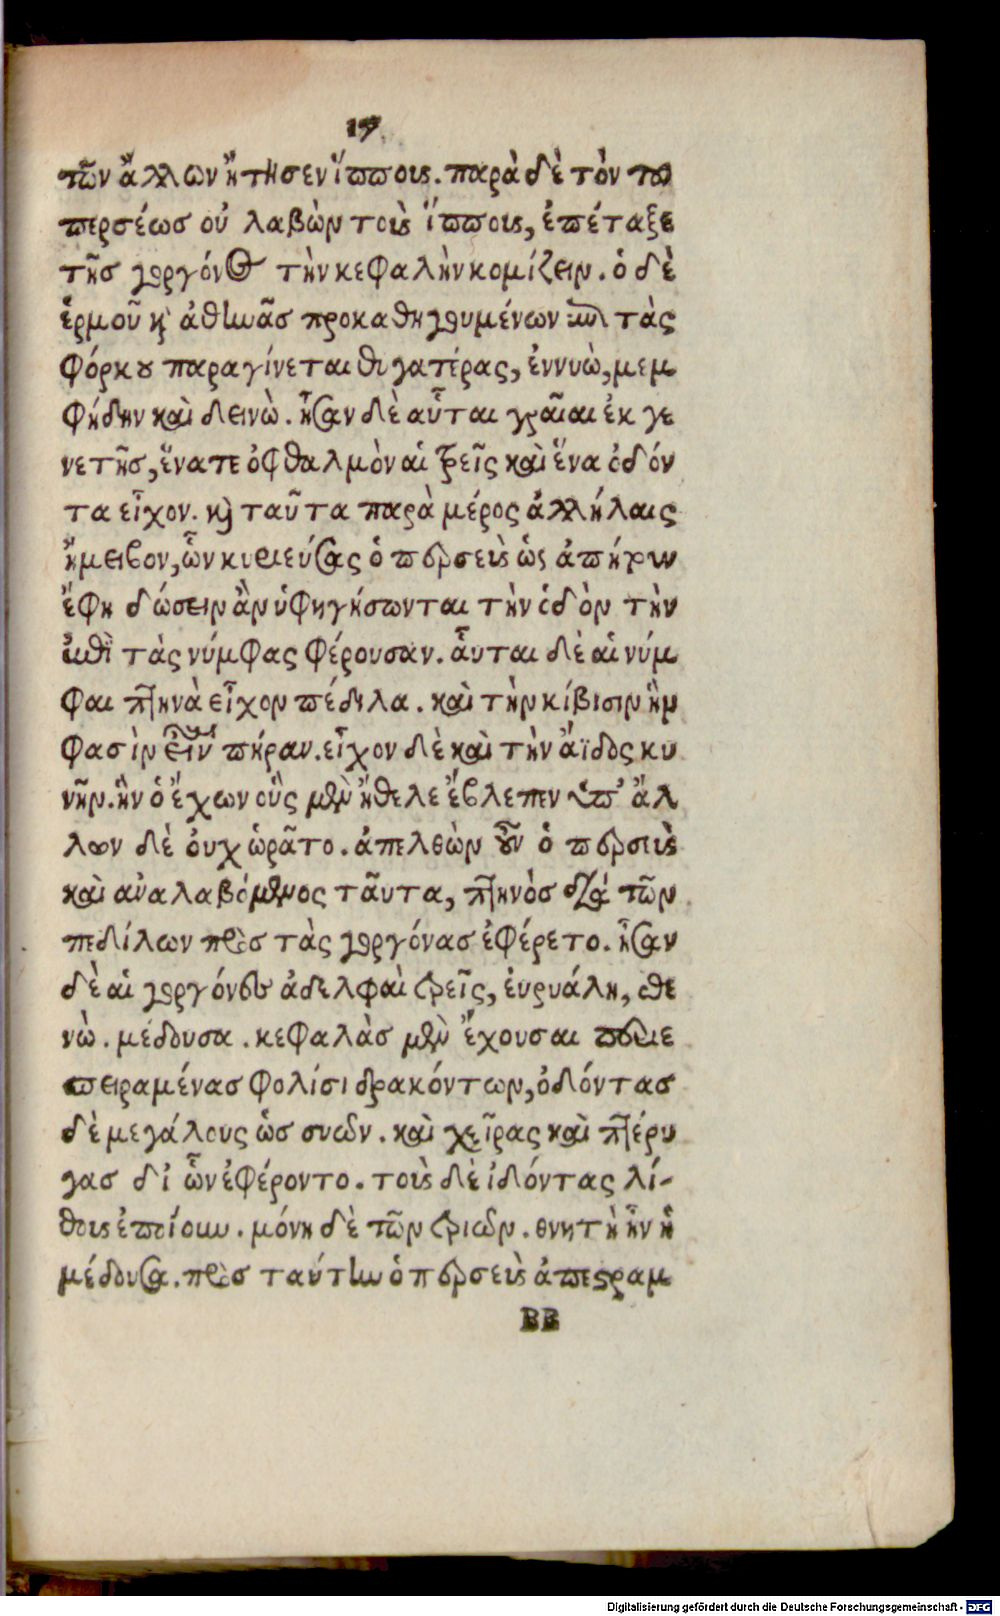 17
τῶν ἄλλων ᾔτησεν ἵππους. παρὰ δὲ τὸν τοῦ
περσέως οὐ λαβὼν τοὺς ἵππους, ἐπέταξε
τῆς γοργόνος τὴν κεφαλὴν κομίζειν. ὁ δὲ
ἑρμοῦ καὶ ἀθηνᾶς προκαθηγουμένων ἐπὶ τὰς
φόρκου παραγίνεται θυγατέρας, ἐννυὼ, μεμ
φήδην καὶ δεινὼ. ἦσαν δὲ αὗται γραῖαι ἐκ γε
νετῆς, ἕνα τε ὀφθαλμὸν αἱ τρεῖς καὶ ἕνα ὀδόν
τα εἶχον. καὶ ταῦτα παρὰ μέρος ἀλλήλαις
ἤμειβον, ὧν κυριεύσας ὁ περσεὺς ὡς ἀπῄτουν
ἔφη δώσειν ἂν ὑφηγήσωνται τὴν ὁδὸν τὴν
ἐπὶ τὰς νύμφας φέρουσαν. αὗται δὲ αἱ νύμ
φαι πτηνὰ εἶχον πέδιλα. καὶ τὴν κίβισιν ἥν
φασὶν εἶναι πήραν. εἶχον δὲ καὶ τὴν ἄϊδος κυ
νῆν. ἣν ὁ ἔχων οὓς μὲν ἤθελε ἔβλεπεν ὑπ' ἄλ
λων δὲ οὐχ ὡρᾶτο. ἀπελθὼν οὖν ὁ περσεὺς
καὶ ἀναλαβόμενος ταῦτα, πτηνὸς διὰ τῶν
πεδίλων πρὸς τὰς γοργόνας ἐφέρετο. ἦσαν
δὲ αἱ γοργόνες ἀδελφαὶ τρεῖς, εὐρυάλη, σθε
νὼ. μέδουσα. κεφαλὰς μὲν ἔχουσαι περιε
σπειραμένας φολίσι δρακόντων, ὀδόντας
δὲ μεγάλους ὡς συῶν. καὶ χεῖρας καὶ πτέρυ
γας δι' ὧν ἐφέροντο. τοὺς δὲ ἰδόντας λί-
θους ἐποίουν. μόνη δὲ τῶν τριῶν. θνητὴ ἦν ἡ
μέδουσα. πρὸς ταύτην ὁ περσεὺς ἀπεστραμ
BB
Digitalisierung gefördert durch die Deutsche Forschungsgemeinschaft - DFG